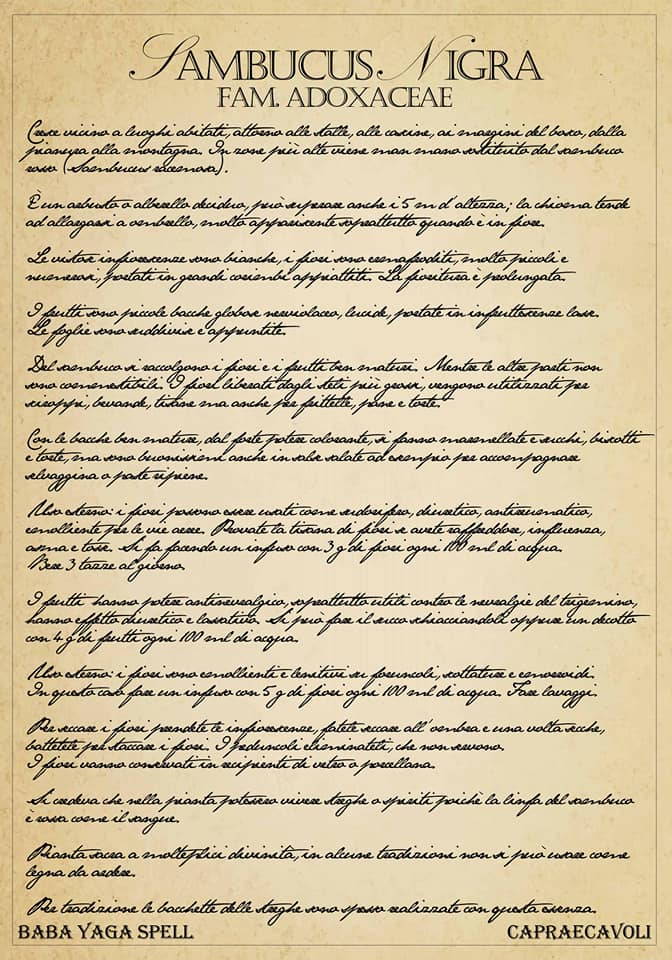 Sambucus Nigra
Fam. Adoxaceae
Cresce vicino a luoghi abitati, attorno alle stalle, alle cascine, ai margini del bosco, dalla
pianura alla montagna. In zone più alte viene man mano sostituito dal sambuco
rosso (Sambucus racemosa).
È un arbusto o alberello deciduo, può superare anche i 5 m d'altezza; la chioma tende
ad allargarsi a ombrello, molto appariscente soprattutto quando è in fiore.
Le vistose infiorescenze sono bianche, i fiori sono ermafroditi, molto piccoli e
numerosi, portati in grandi corimbi appiattiti. La fioritura è prolungata.
I frutti sono piccole bacche globose neroviolacee, lucide, portate in infruttescenze lasse.
Le foglie sono suddivise e appuntite.
Del sambuco si raccolgono i fiori e i frutti ben maturi. Mentre le altre parti non
sono commestibili. I fiori liberati dagli steli più grossi, vengono utilizzati per
sciroppi, bevande, tisane ma anche per frittelle, pane e torte.
Con le bacche ben mature, dal forte potere colorante, si fanno marmellate e succhi, biscotti
e torte, ma sono buonissimi anche in salse salate ad esempio per accompagnare
selvaggina o paste ripiene.
Uso esterno: i fiori possono essere usati come sudorifero, diuretico, antireumatico,
emolliente per le vie aeree. Provate la tisana di fiori se avete raffreddore, influenza,
asma e tosse. Si fa facendo un infuso con 3 g di fiori ogni 100 ml di acqua.
Bere 3 tazze al giorno.
I frutti hanno potere antinevralgico, soprattutto utili contro le nevralgie del trigemino,
hanno effetto diuretico e lassativo. Si può fare il succo schiacciandoli oppure un decotto
con 4 g di frutti ogni 100 ml di acqua.
Uso esterno: i fiori sono emollienti e lenitivi su foruncoli, scottature e emorroidi.
In questo caso fare un infuso con 5 g di fiori ogni 100 ml di acqua. Fare lavaggi.
Per seccare i fiori prendete le infiorescenze, fatele seccare all'ombra e una volta secche,
battetele per staccare i fiori. I peduncoli eliminateli, che non servono.
I fiori vanno conservati in recipienti di vetro o porcellana.
Si credeva che nella pianta potessero vivere streghe o spiriti poichè la linfa del sambuco
è rossa come il sangue.
Pianta sacra a molteplici divinità, in alcune tradizioni non si può usare come
legna da ardere.
Per tradizione le bacchette delle streghe sono spesso realizzate con questa essenza.
Baba Yaga Spell
Capraecavoli